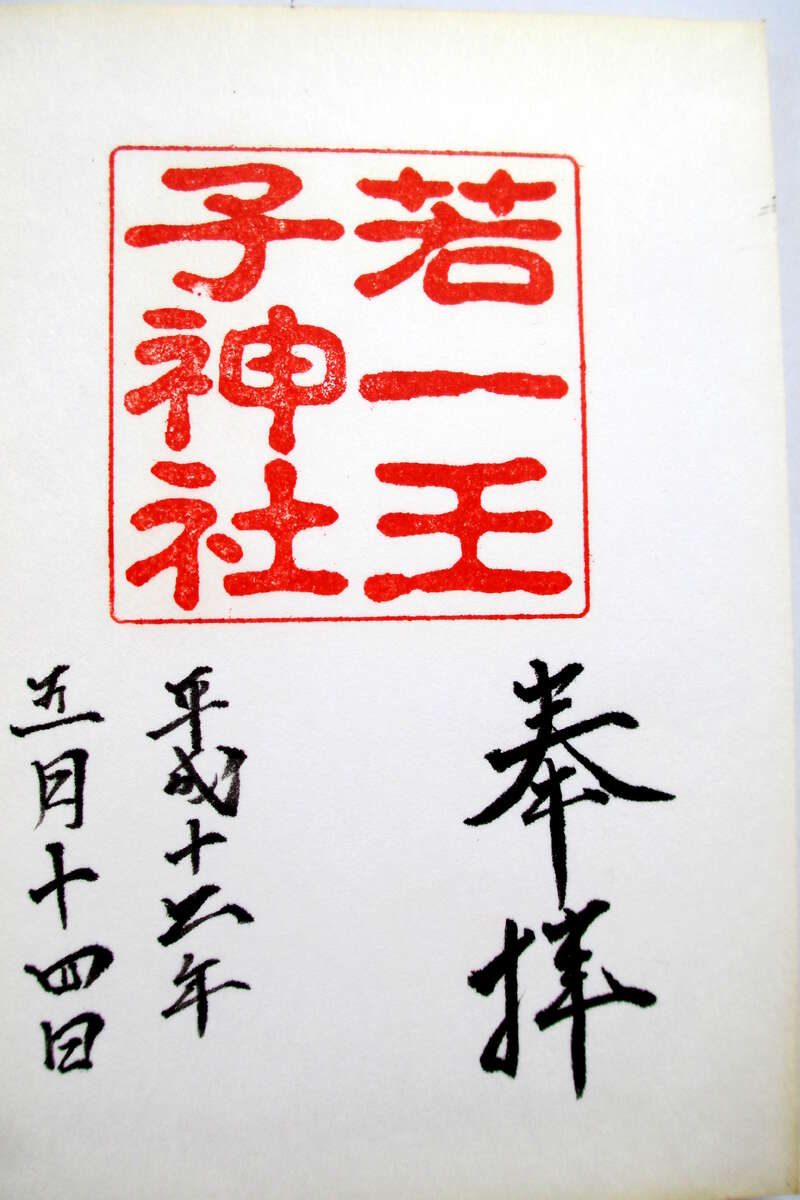 若一王
子神社
奉拝
平成十六年
五月十四日